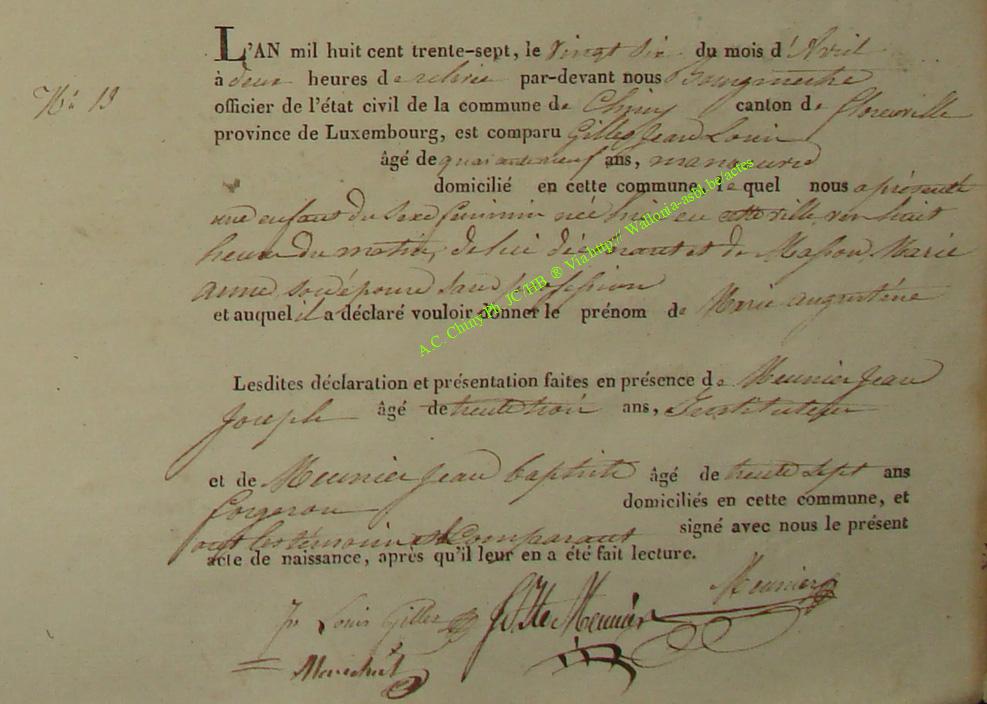 L'AN mil huit cent trente-sept, le vingt six du mois d'Avril
à deux heures de relevée par-devant nous Bourgmestre
N° 13
officier de l'état civil de la commune de Chiny canton de Florenville
province de Luxembourg, est comparu Gilles Jean Louis
âgé de quarante neuf ans, manoeuvre
domicilié en cette commune, lequel nous a présenté
une enfant du sexe féminin née hier en cette ville vers huit
heures du matin, de lui déclarant et de Masson Marie
Anne son épouse sans profession
et auquel il a déclaré vouloir donner le prénom de Marie Augustine
Lesdites déclaration et présentation faites en présence de Meunier Jean
Joseph âgé de trente trois ans, Instituteur
et de Meunier Jean baptiste âgé de trente sept ans
forgeron domiciliés en cette commune, et
ont les témoins et Comparant signé avec nous le présent
acte de naissance, après qu'il leur en a été fait lecture.
Jn Louis Gilles JBte Meunier Meunier
Maréchal
A.C. Chiny Ph. JC/HB ® Via http// Wallonia-asbl.be/actes